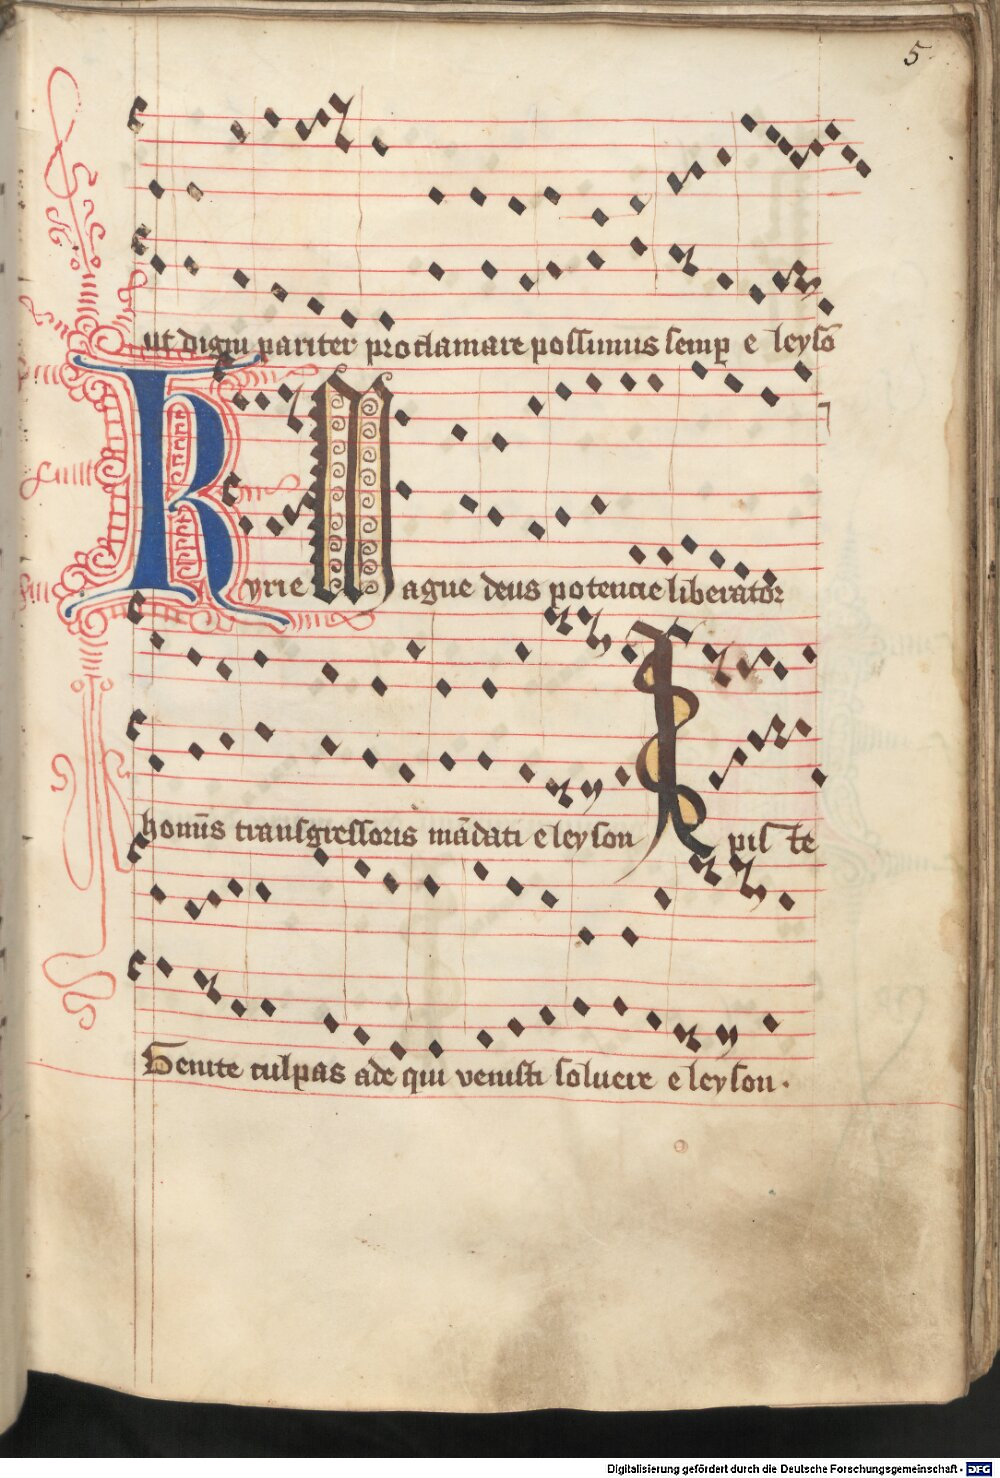 5
ut digni pariter proclamare possimus semp e leysō
Kyrie Mague deus potencie liberator
homīs transgressoris mādati e leyson Xpiste
Genite culpas ade qui venisti soluere e leyson.
Digitalisierung gefördert durch die Deutsche Forschungsgemeinschaft - DFG